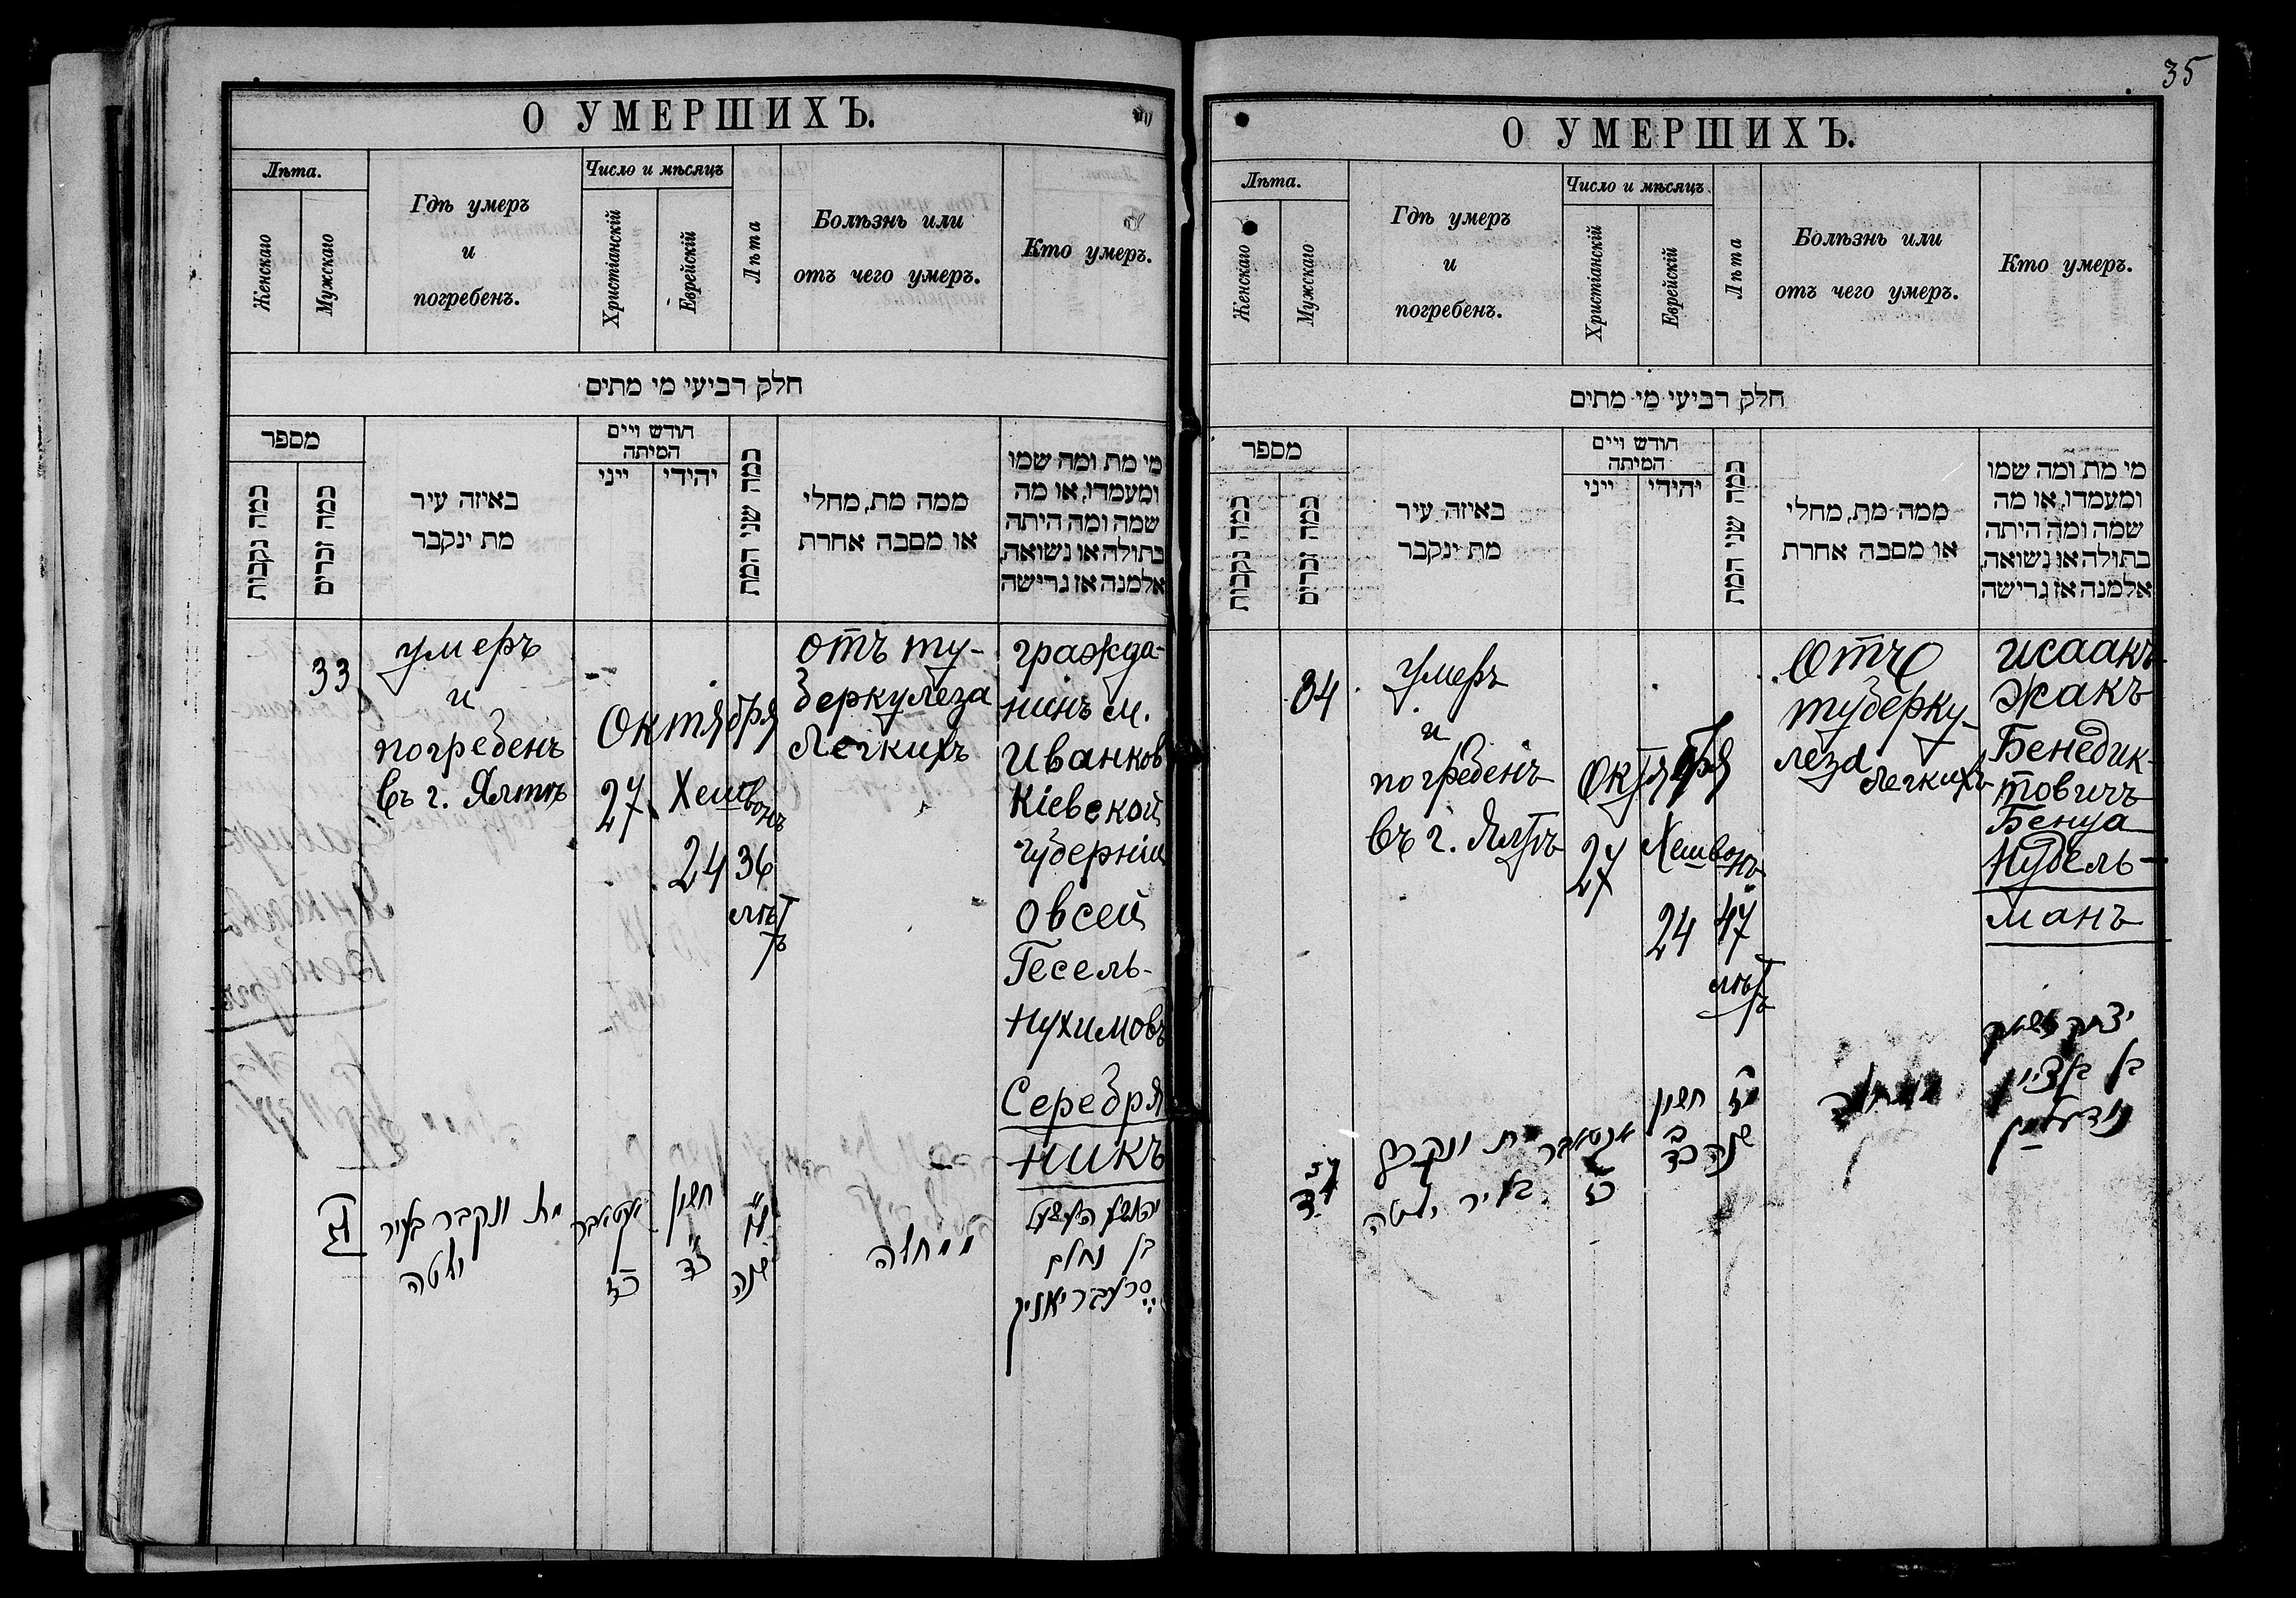 О УМЕРШИХЪ.
Лѣта.
Женскаго
Мужскаго
Гдѣ умеръ
и
погребенъ.
Число и мѣсяцъ
Христіанскій
Еврейскій
Лѣта
Болѣзнь или
отъ чего умеръ.
Кто умеръ.
חלק רביעי מי מתים
מספר
כמה נקבות
כמה זכרים
באיזה עיר
מת ינקבר
חודש ויים
המיתה
ייני
יהידי
כמה שני המת
ממה מת, מחלי
או מסבה אחרת
מי מת ומה שמו
ומעמדו, או מה
שמה ומה היתה
בתולה או נשואה,
אלמנה אז גרישה
33
умеръ
и
погребенъ
въ г. Ялтѣ
Октября
27
Хешвонъ
24
36
лѣтъ
отъ ту-
беркулеза
Легкихъ
гражда-
нинъ м.
Иванков
Кіевской
губерніи
Овсей
Гесель-
Нухимовъ
Серебря
никъ
לג
מת ונקבר בעיר
יאלטה
אקטאבר
כז
חשון
כד
לו
שנה
ממחלה
יהושע העשעל
בן נחום
סרעבריאניק
35
О УМЕРШИХЪ.
Лѣта.
Женскаго
Мужскаго
Гдѣ умеръ
и
погребенъ.
Число и мѣсяцъ
Христіанскій
Еврейскій
Лѣта
Болѣзнь или
отъ чего умеръ.
Кто умеръ.
חלק רביעי מי מתים
מספר
כמה נקבות
כמה זכרים
באיזה עיר
מת ינקבר
חודש ויים
המיתה
ייני
יהידי
כמה שני המת
ממה מת, מחלי
או מסבה אחרת
מי מת ומה שמו
ומעמדו, או מה
שמה ומה היתה
בתולה או נשואה,
אלמנה אז גרישה
34
умеръ
и
погребенъ
въ г. Ялтѣ
Октября
27
Хешвонъ
24
47
лѣтъ
Отъ
туберку-
леза
Легкихъ
Исаакъ
Жакъ
Бенедик-
товичъ
Бенуа
Нудель-
манъ
מת ונקבר
בעיר יאלטה
אקטאבר
כז
חשון
כד
מז
שנה
ממחלה
יצחק
בן בן ציון
נודעלמאן